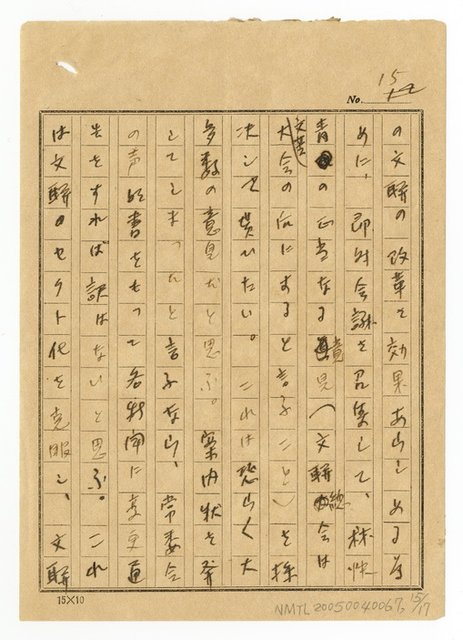 No. 15
の文聯の改革を効果あらしめる為
めに、即時会議を召集して、林快
青の正当なる意見（文聯総会は
文芸大会の向にすると言ふこと）を採
決して貰ひたい。これは恐らく大
多数の意見だと思ふ。案内状を発
してしまったと言ふなら、常委会
の声明書をもって各新聞に変更通
告をすれば訳はないと思ふ。これ
は文聯のセクト化を克服し、文聯
15×10
NMTL 20050040067, 15/17